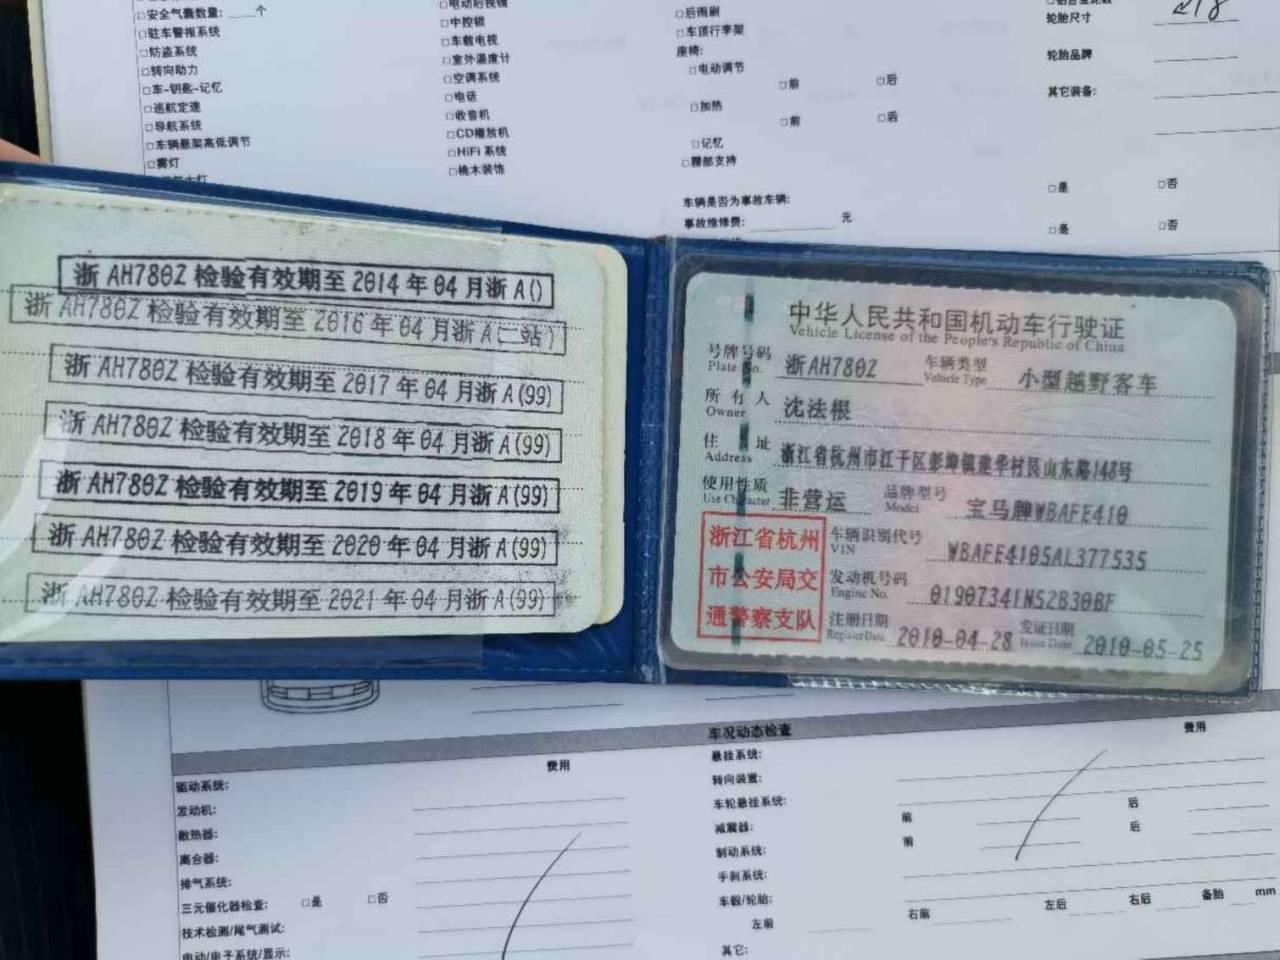 □安全气囊数量: ____个
□驻车警报系统
□防盗系统
□转向助力
□车-钥匙-记忆
□巡航定速
□导航系统
□车辆悬架高低调节
□雾灯
□电动后视镜
□中控锁
□车载电视
□室外温度计
□空调系统
□电话
□收音机
□CD播放机
□HiFi 系统
□桃木装饰
□后雨刷
□车顶行李架
座椅:
□电动调节
□前 □后
□加热
□前 □后
□记忆
□腰部支持
车辆是否为事故车辆: □是 □否
事故维修费: ________元 □是 □否
轮胎尺寸
轮胎品牌
其它装备:
浙 AH780Z 检验有效期至 2014 年 04 月浙 A()
浙 AH780Z 检验有效期至 2016 年 04 月浙 A(二站)
浙 AH780Z 检验有效期至 2017 年 04 月浙 A(99)
浙 AH780Z 检验有效期至 2018 年 04 月浙 A(99)
浙 AH780Z 检验有效期至 2019 年 04 月浙 A(99)
浙 AH780Z 检验有效期至 2020 年 04 月浙 A(99)
浙 AH780Z 检验有效期至 2021 年 04 月浙 A(99)
中华人民共和国机动车行驶证
Vehicle License of the People's Republic of China
号牌号码 浙AH780Z 车辆类型 小型越野客车
Plate No. Vehicle Type
所有人 沈法根
Owner
住址 浙江省杭州市江干区彭埠镇建华村艮山东路148号
Address
使用性质 非营运 品牌型号 宝马牌WBAFE410
Use Character Model
浙江省杭州
市公安局交
通警察支队
车辆识别代号 WBAFE4105AL377535
VIN
发动机号码 01907341N52B30BF
Engine No.
注册日期 2010-04-28 发证日期 2010-05-25
Register Date Issue Date
车况动态检查
费用 费用
驱动系统:
发动机:
散热器:
离合器:
排气系统:
三元催化器检查: □是 □否
技术检测/尾气测试:
电动/电子系统/显示:
悬挂系统:
转向装置:
车轮悬挂系统: 前 后
减震器: 前 后
制动系统:
手刹系统:
车毂/轮胎:
左前 右前 左后 右后 备胎 mm
其它: